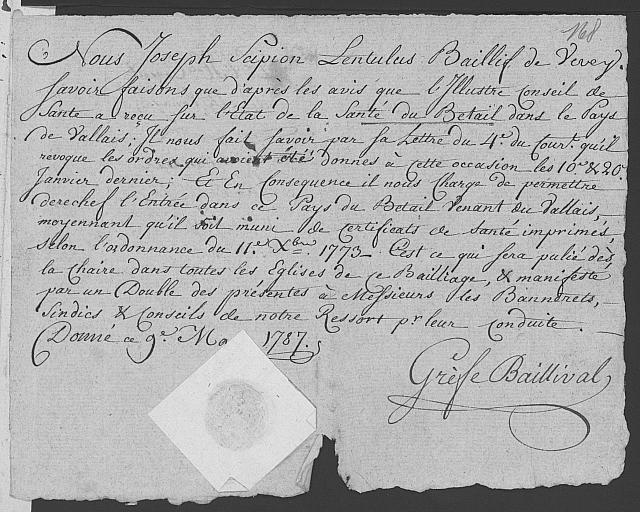 168
Nous Joseph Scipion Lentulus Baillif de Vevey.
Savoir faisons que d'apres les avis que l'Illustre Conseil de
Santé a reçu sur l'Etat de la Santé du Betail dans le Pays
de Vallais: Il nous fait savoir par sa Lettre du 4e. du Court. qu'il
revoque les ordres qui avoient été donnés à cette occasion les 10e. & 20e.
Janvier dernier; Et En Consequence il nous Charge de permettre
derechef l'Entrée dans ce Pays du Betail Venant du Vallais,
moyennant qu'il soit muni de Certificats de Santé imprimés,
selon l'ordonnance du 11e. Xbre. 1773. C'est ce qui sera pulié dès
la Chaire dans toutes les Eglises de ce Bailliage, & manifesté
par un Double des présentes à Messieurs les Bannerets,
Sindics & Conseils de notre Ressort pr. leur conduite.
Donné ce 9e. 1787.
Grèfe Baillival